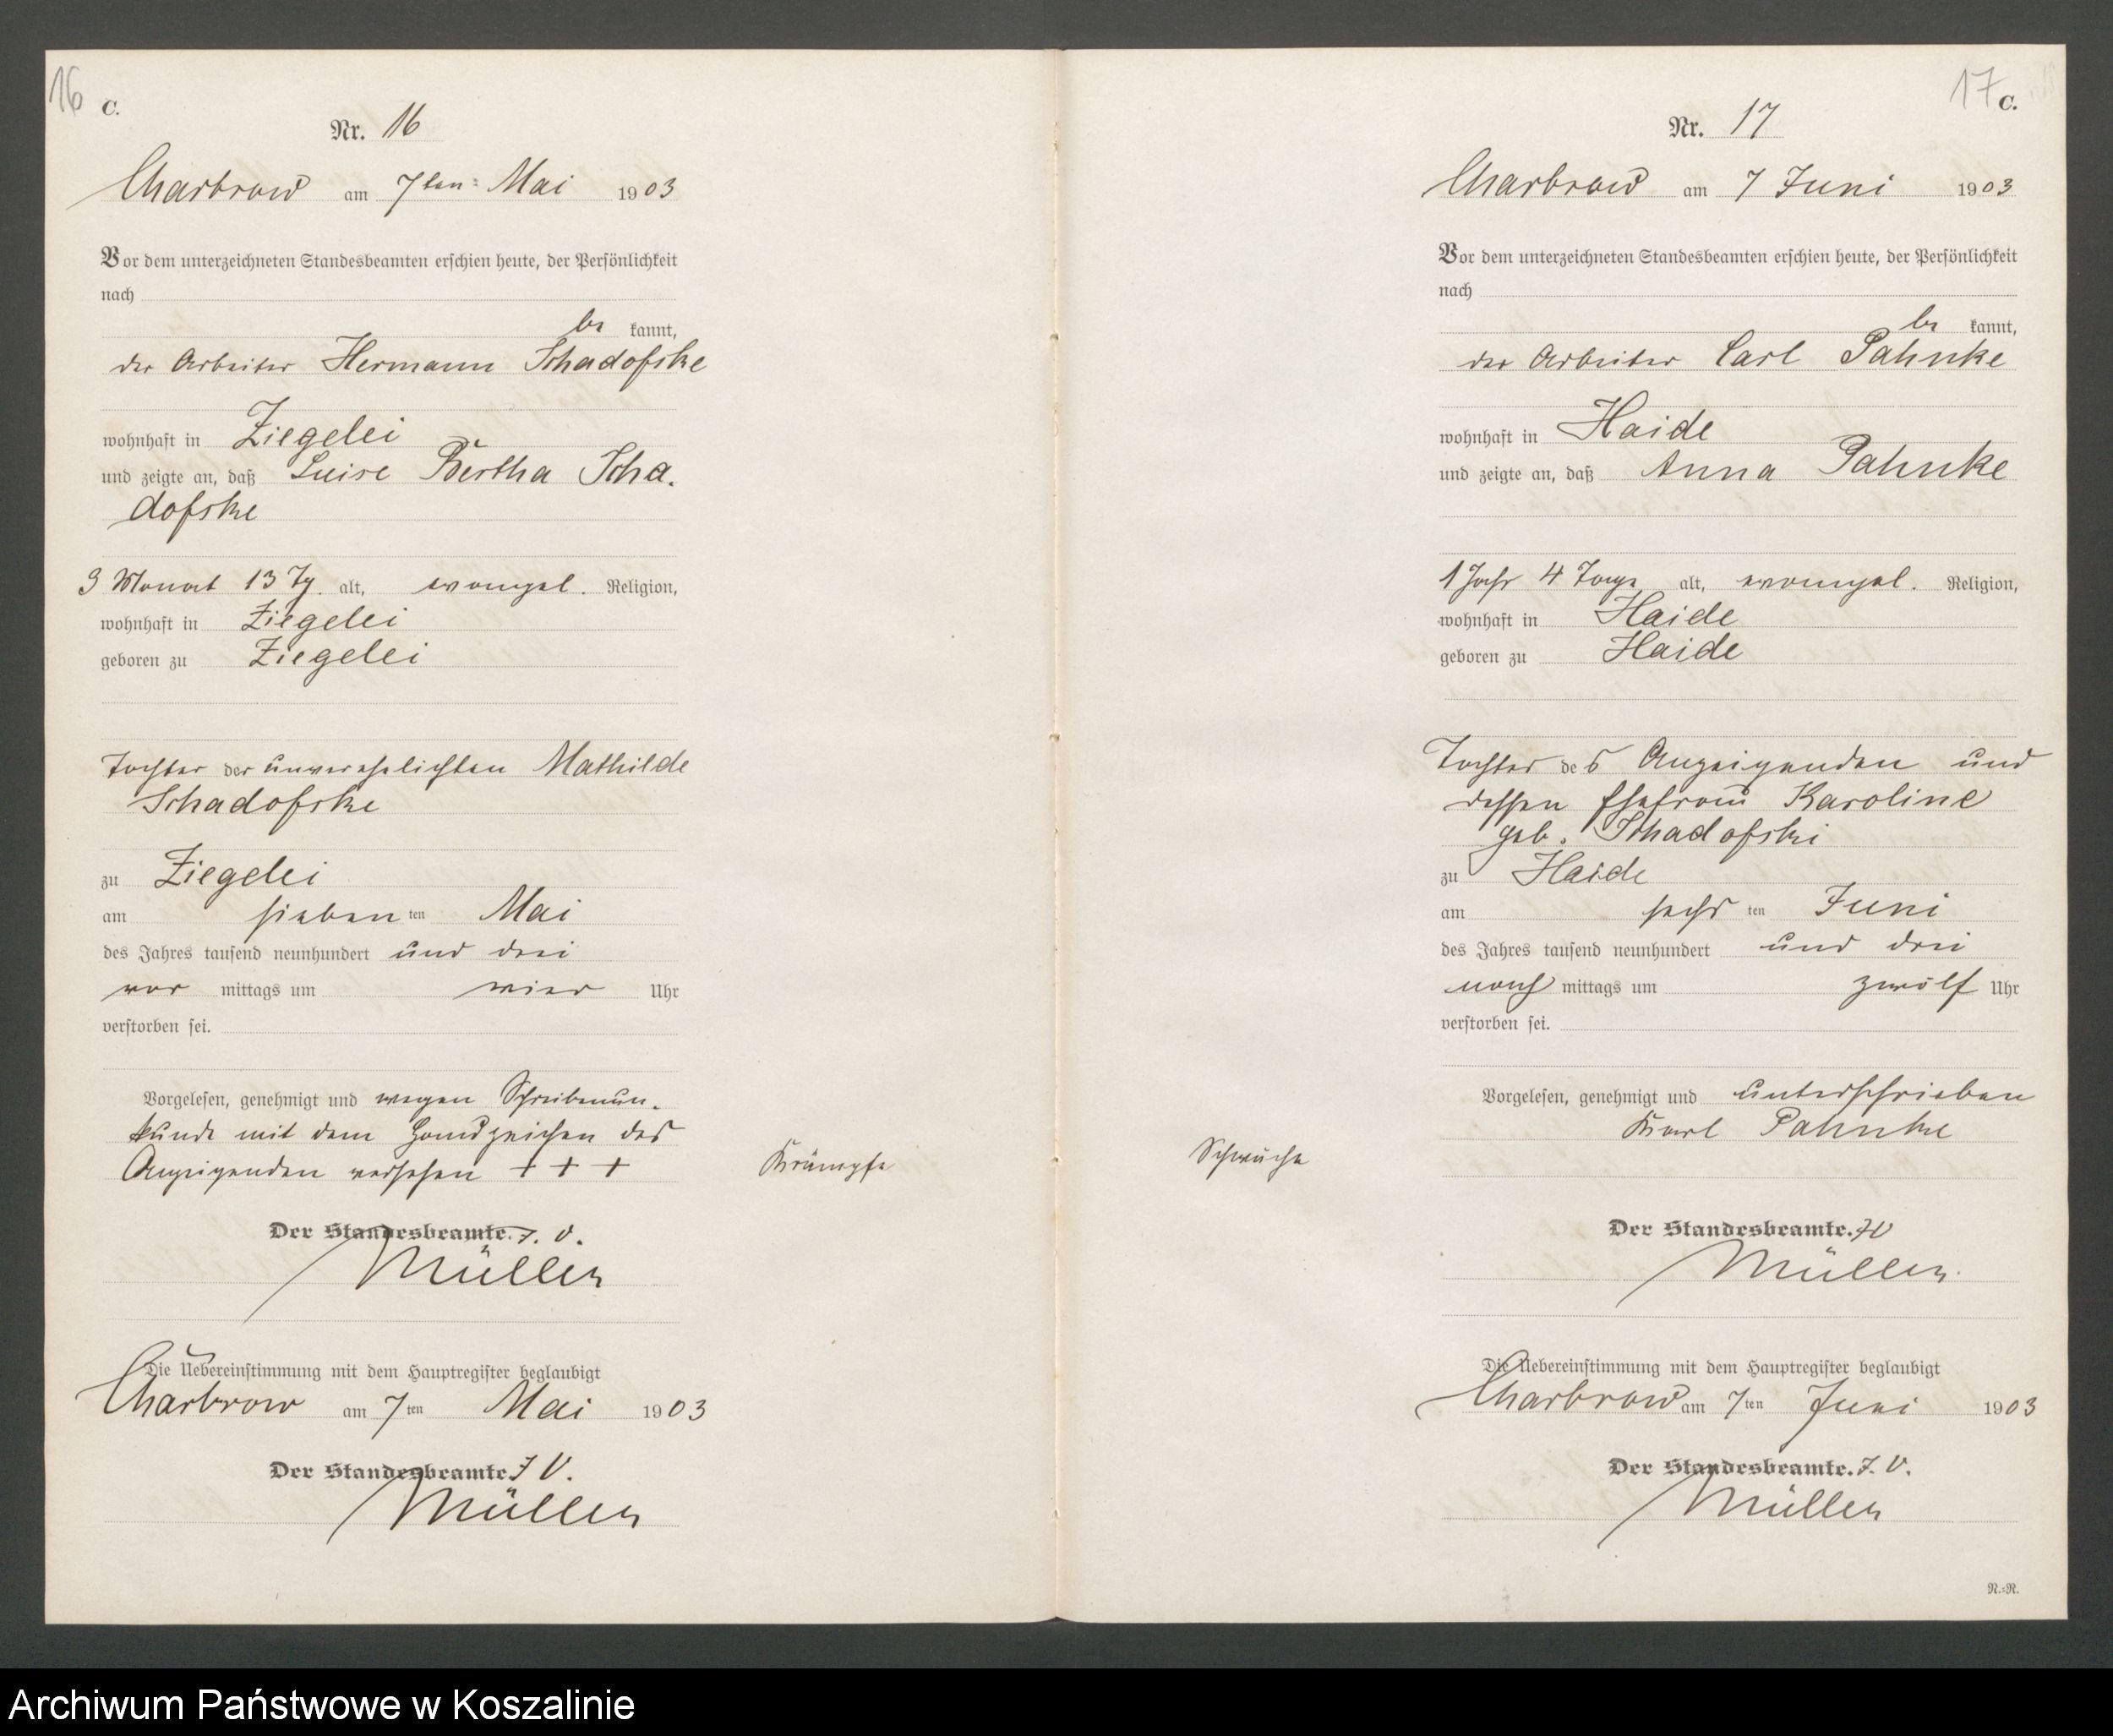 16
C.
Nr. 16
Charbrow am 7ten Mai 1903
Vor dem unterzeichneten Standesbeamten erschien heute, der Persönlichkeit
nach
be kannt,
der Arbeiter Hermann Schadofske
wohnhaft in Ziegelei
und zeigte an, daß Luise Bertha Scha-
dofske
3 Monat 13 Tg. alt, evangel. Religion,
wohnhaft in Ziegelei
geboren zu Ziegelei
Tochter der unverehelichten Mathilde
Schadofske
zu Ziegelei
am sieben ten Mai
des Jahres tausend neunhundert und drei
vor mittags um vier Uhr
verstorben sei.
Vorgelesen, genehmigt und wegen Schreibenun-
kunde mit dem Handzeichen des
Anzeigenden versehen + + +
Krämpfe
Der Standesbeamte. I. V.
Müller
Die Uebereinstimmung mit dem Hauptregister beglaubigt
Charbrow am 7ten Mai 1903
Der Standesbeamte I V.
Müller
17
C.
Nr. 17
Charbrow am 7 Juni 1903
Vor dem unterzeichneten Standesbeamten erschien heute, der Persönlichkeit
nach
be kannt,
der Arbeiter Carl Pahnke
wohnhaft in Haide
und zeigte an, daß Anna Pahnke
1 Jahr 4 Tage alt, evangel. Religion,
wohnhaft in Haide
geboren zu Haide
Tochter des Anzeigenden und
dessen Ehefrau Karoline
geb. Schadofski
zu Haide
am sechs ten Juni
des Jahres tausend neunhundert und drei
nach mittags um zwölf Uhr
verstorben sei.
Vorgelesen, genehmigt und unterschrieben
Karl Pahnke
Schwäche
Der Standesbeamte. IV
Müller
Die Uebereinstimmung mit dem Hauptregister beglaubigt
Charbrow am 7ten Juni 1903
Der Standesbeamte. I. V.
Müller
N.=N.
Archiwum Państwowe w Koszalinie